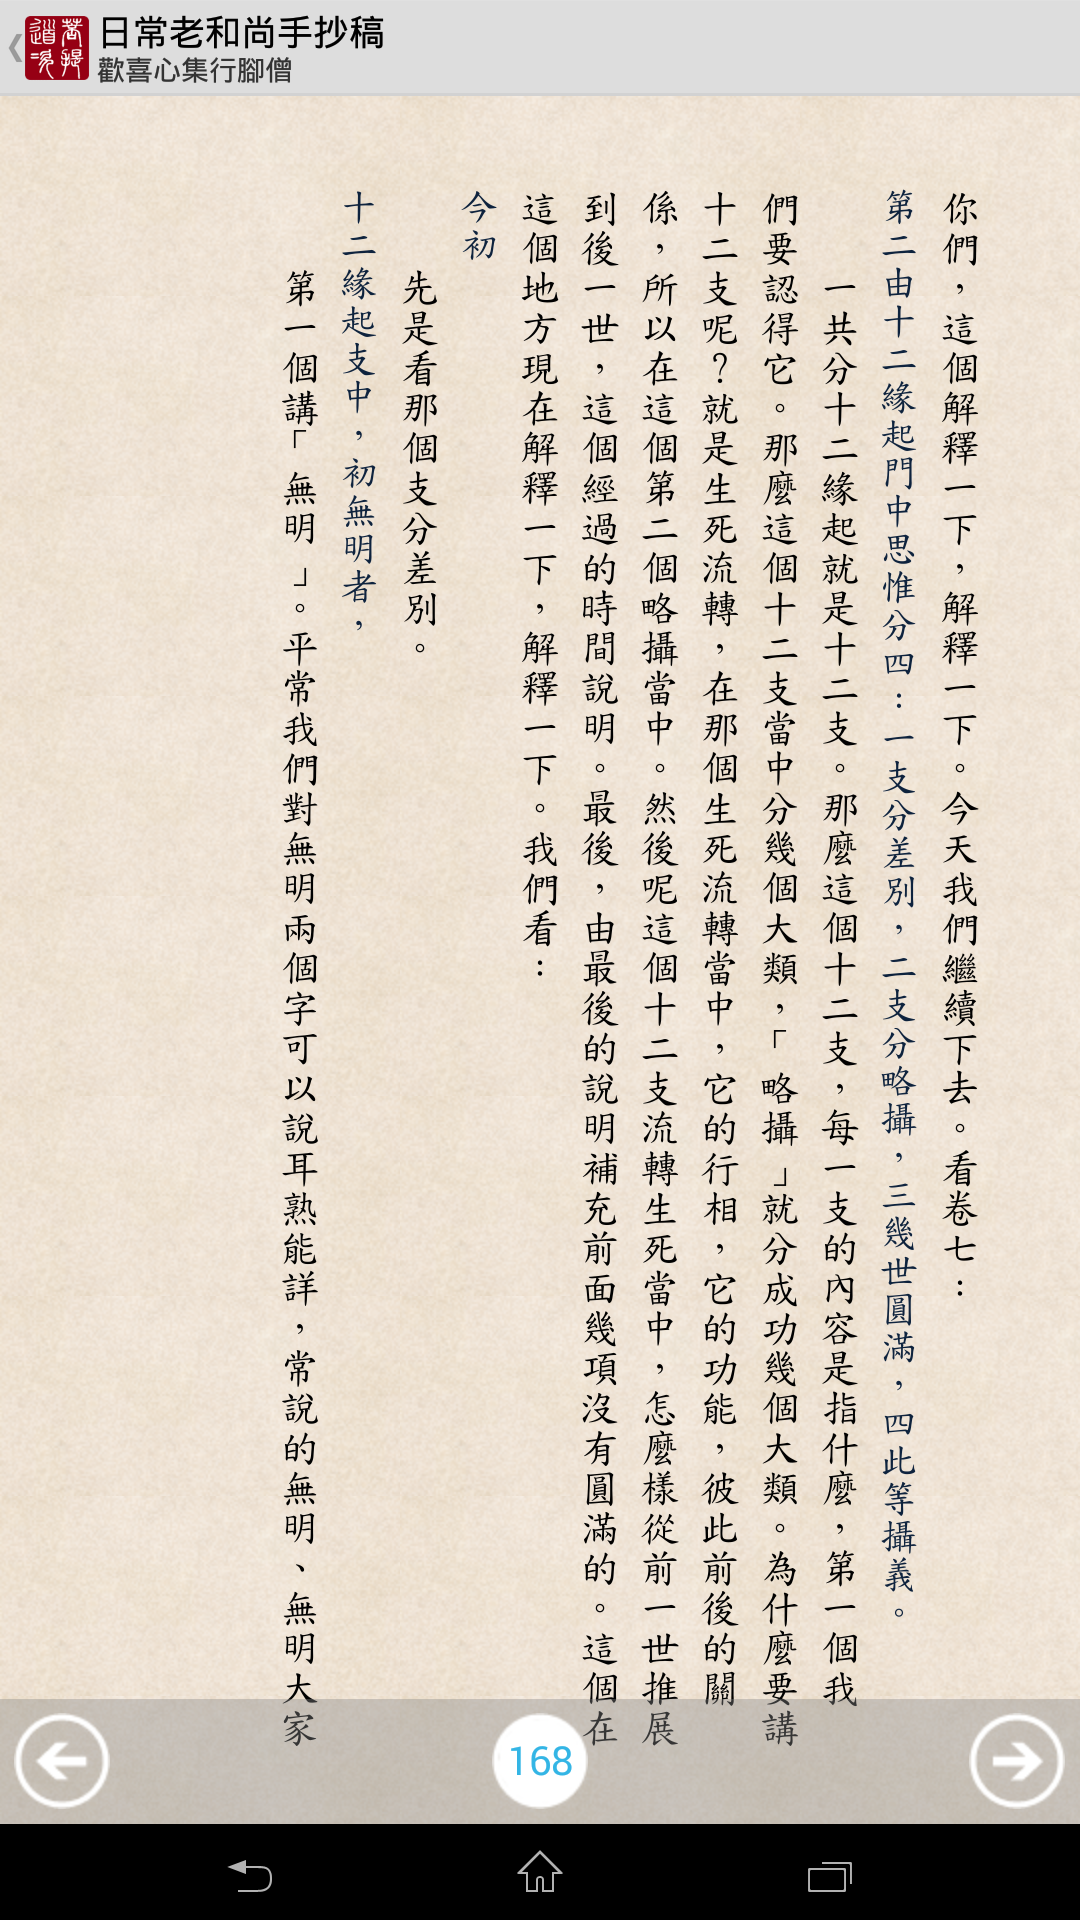 菩提道次
日常老和尚手抄稿
歡喜心集行腳僧
你們，這個解釋一下，解釋一下。今天我們繼續下去。看卷七：
第二由十二緣起門中思惟分四：一支分差別，二支分略攝，三幾世圓滿，四此等攝義。
一共分十二緣起就是十二支。那麼這個十二支，每一支的內容是指什麼，第一個我
們要認得它。那麼這個十二支當中分幾個大類，「略攝」就分成功幾個大類。為什麼要講
十二支呢？就是生死流轉，在那個生死流轉當中，它的行相，它的功能，彼此前後的關
係，所以在這個第二個略攝當中。然後呢這個十二支流轉生死當中，怎麼樣從前一世推展
到後一世，這個經過的時間說明。最後，由最後的說明補充前面幾項沒有圓滿的。這個在
這個地方現在解釋一下，解釋一下。我們看：
今初
先是看那個支分差別。
十二緣起支中，初無明者，
第一個講「無明」。平常我們對無明兩個字可以說耳熟能詳，常說的無明、無明大家
168